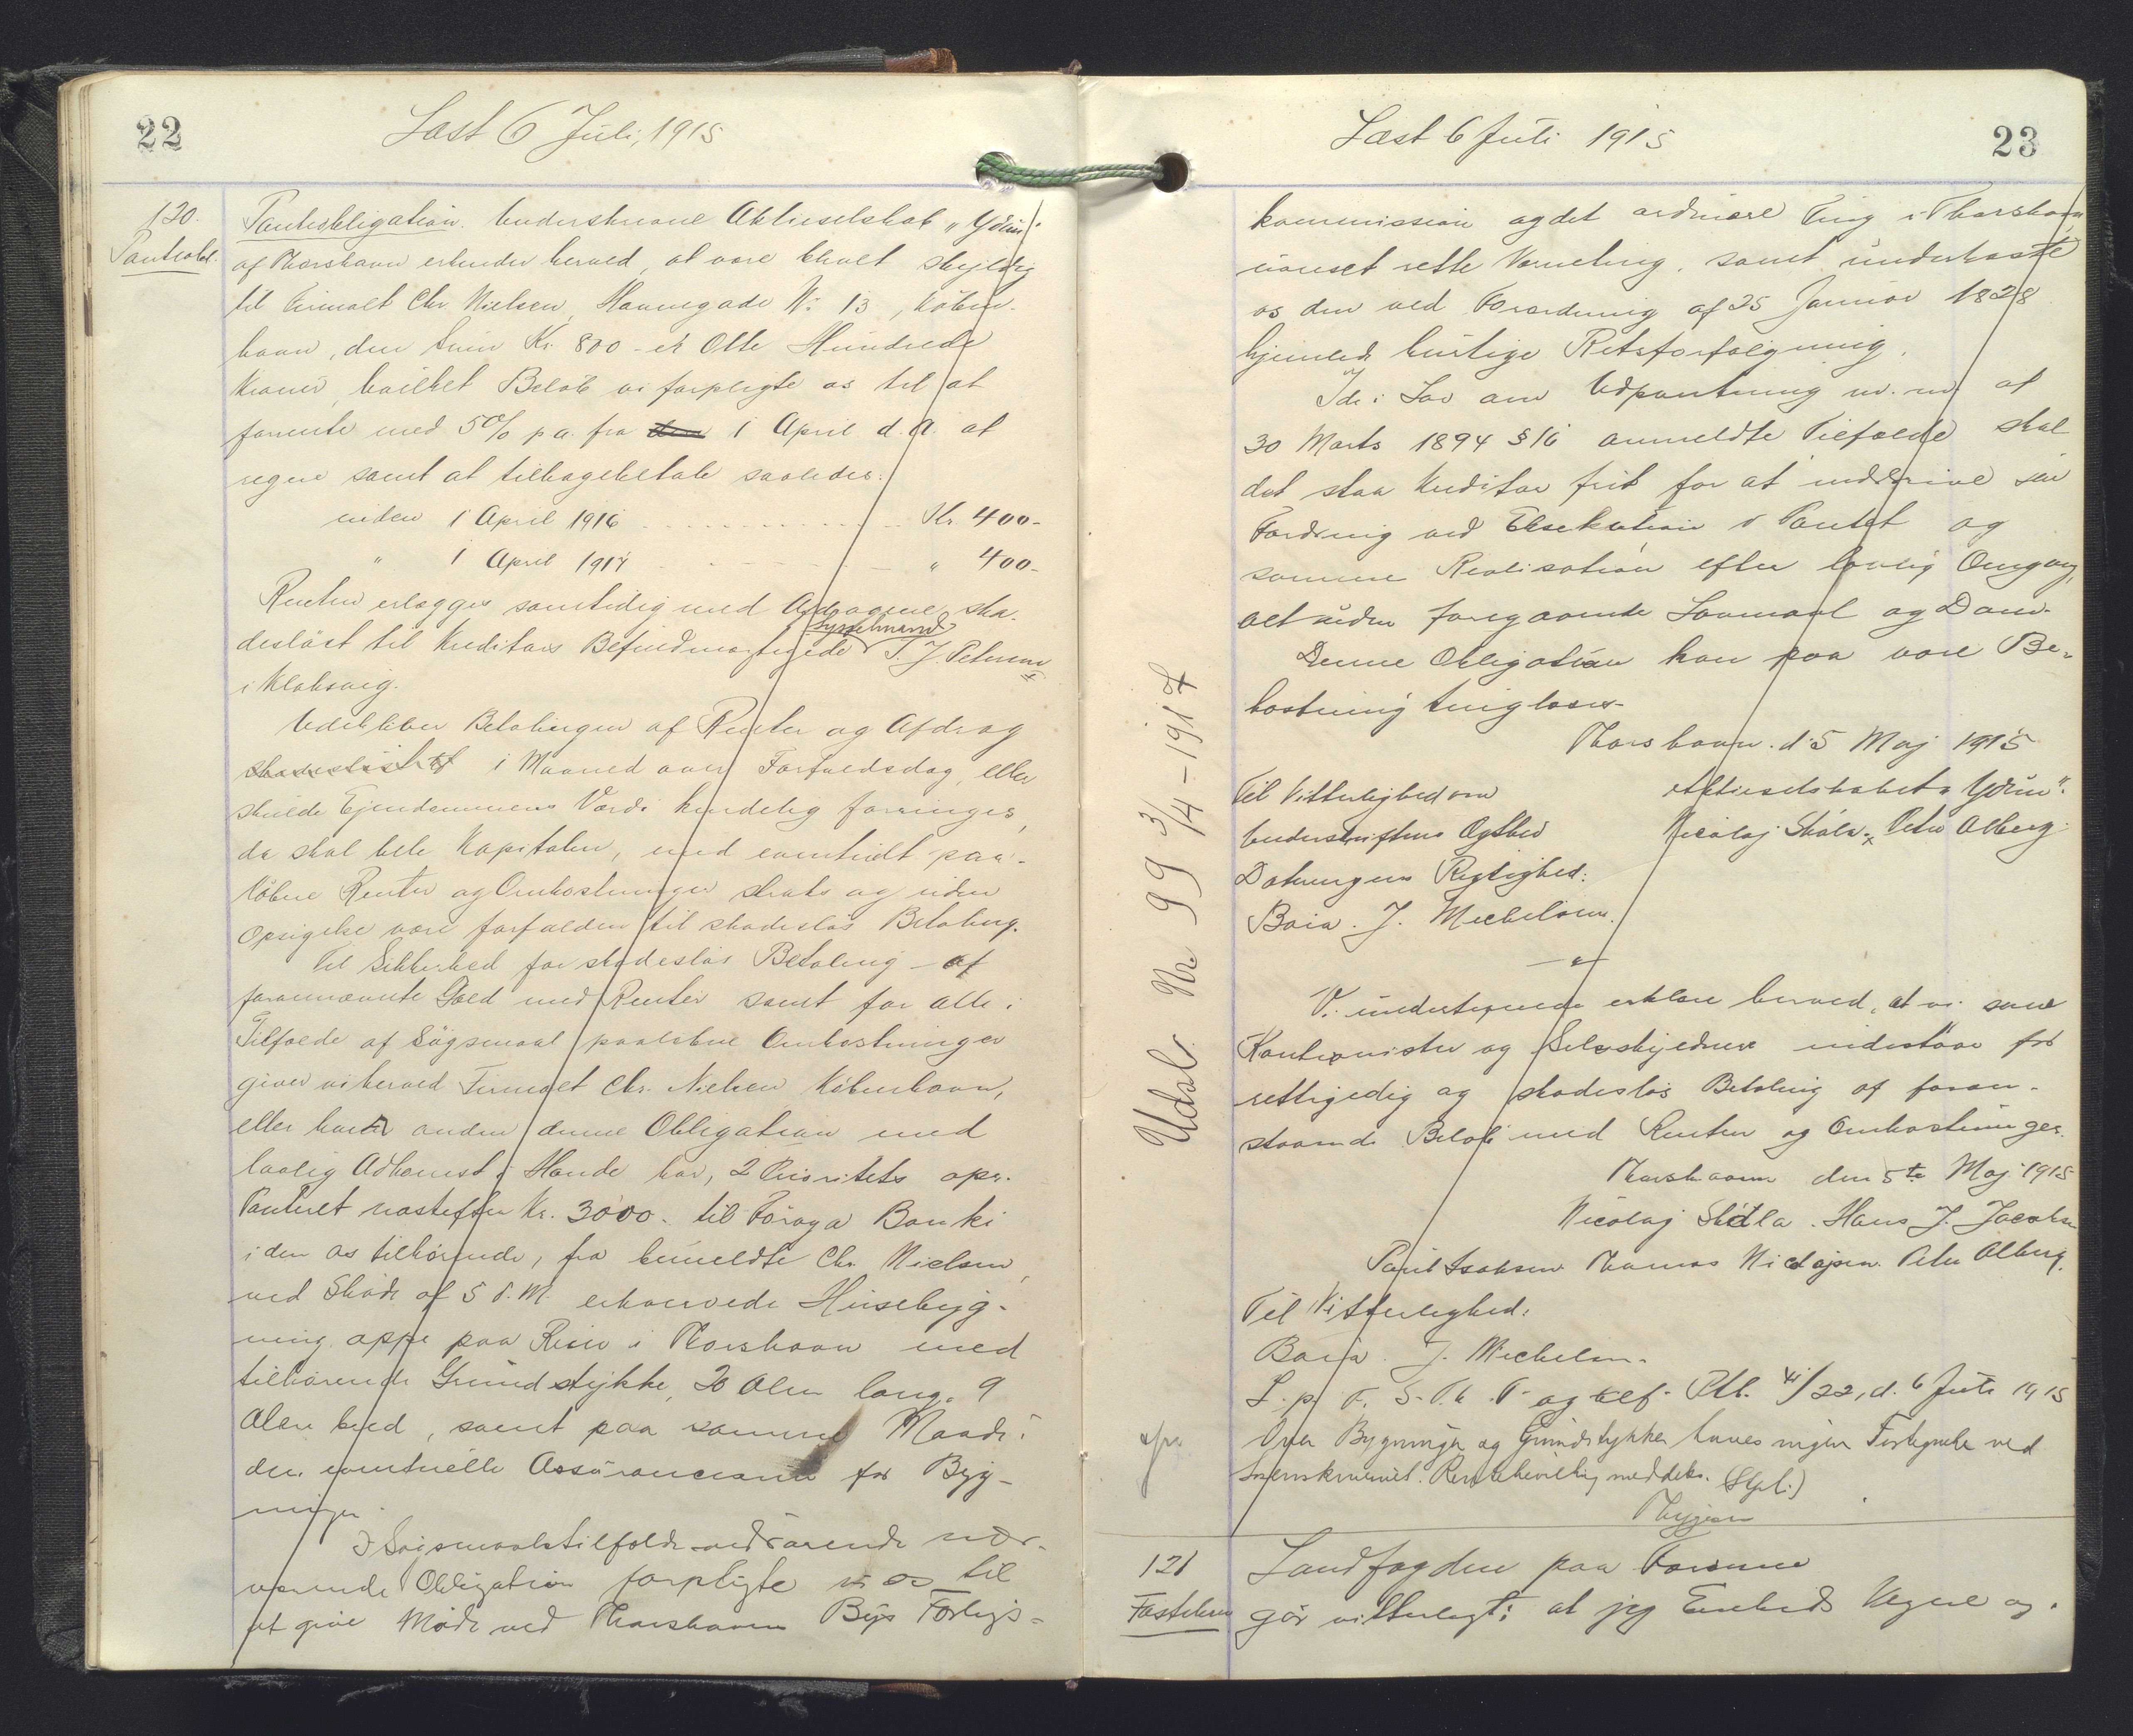 22
Læst 6 Juli, 1915
120.
Pantobl.
Pantobligation. Underskrevne Aktieselskab „Ydun"
af Thorshavn erkender herved, at være bleven skyldig
til Firmaet Chr. Nielsen, Havnegade No 13, Köben-
havn, den Sum Kr. 800 - er Otte Hundrede
Kroner, hvilket Belöb vi forpligte os til at
forrente med 5% p a. fra 1 April d. A. at
regne samt at tilbagebetale saaledes:
inden 1 April 1916 Kr. 400-
" 1 April 1917 " 400-
Renten erlægges samtidig med Afdragene ska-
deslöst til Kreditors Befuldmægtigede Sysselmand J. Petersen
i Klaksvig.
Udebliver Betalingen af Renter og Afdrag
i Maaned over Forfaldsdag, eller
skulde Ejendommens Værdi kendelig forringes,
da skal hele Kapitalen, med eventuelt paa-
löbne Renter og Omkostninger straks og uden
Opsigelse være forfalden til skadeslös Betaling.
Til Sikkerhed for skadeslös Betaling af
forannævnte Gæld med Renter samt for alle i
Tilfælde af Sögsmaal paalöbne Omkostninger
giver vi herved Firmaet Chr. Nielsen, Köbenhavn,
eller hvem anden denne Obligation med
lovlig Adkomst i Hænde har, 2 Prioritets opr.
Panteret næstefter Kr. 3000. til Föroya Banki
i den os tilhörende, fra bemeldte Chr. Nielsen,
ved Sköde af S. D. erhvervede Husebyg-
ning oppe paa Reyn i Thorshavn med
tilhörende Grundstykke, 20 Alen lang, 9
Alen bred, samt paa samme Maade i
den eventuelle Assurancesum for Byg-
ningen
I Søgsmaalstilfælde vedrörende nær-
værende Obligation forpligte vi os til
at give Möde ved Thorshavns Bys Forligs-
Udsl. Nr. 99 3/4-1917
23
Læst 6 Juli 1915
kommission og det ordinære Ting i Thorshavn
uanset rette Værneting, samt underkaste
os den ved Forordning af 25 Januar 1828
hjemlede hurtige Retsforfølgning.
I de i Lov om Udpantning m. m. af
30 Marts 1894 § 16 anmeldte Tilfælde skal
det staa Kreditor frit for at inddrive sin
Fordring ved Eksekution i Pantet og
sammes Realisation efter lovlig Omgang,
alt uden foregaaende Lovmaal og Dom.
Denne Obligation kan paa vore Be-
kostning tinglæses
Thorshavn. d. 5 Maj 1915
Til Vitterlighed om
Underskriftens Ægthed
Dateringens Rigtighed:
Aktieselskabet „Ydun".
Nicolaj Skála. Peter Alberg
J. Michelsen.
Vi undertegnede erklære herved, at vi som
Kautionister og Selvskyldnere indestaa for
rettigedig og skadeslös Betaling af foran-
staaende Belöb med Renter og Omkostninger.
Thorshavn den 5te Maj 1915
Nicolaj Skála. Hans J. Jacobsen
Poul Isaksen Thomas Nicolajsen. Peter Alberg.
Til Vitterlighed:
J. Michelsen.
d. 6 Juli 1915
Over Bygningen og Grundstykket haves ingen Fortegnelse ved
Sorenskriveriet. meddeles. (Gebr.)
121
Fæstebrev
Landfogden paa Færöerne
gör vitterligt: at jeg Embeds Vegne og